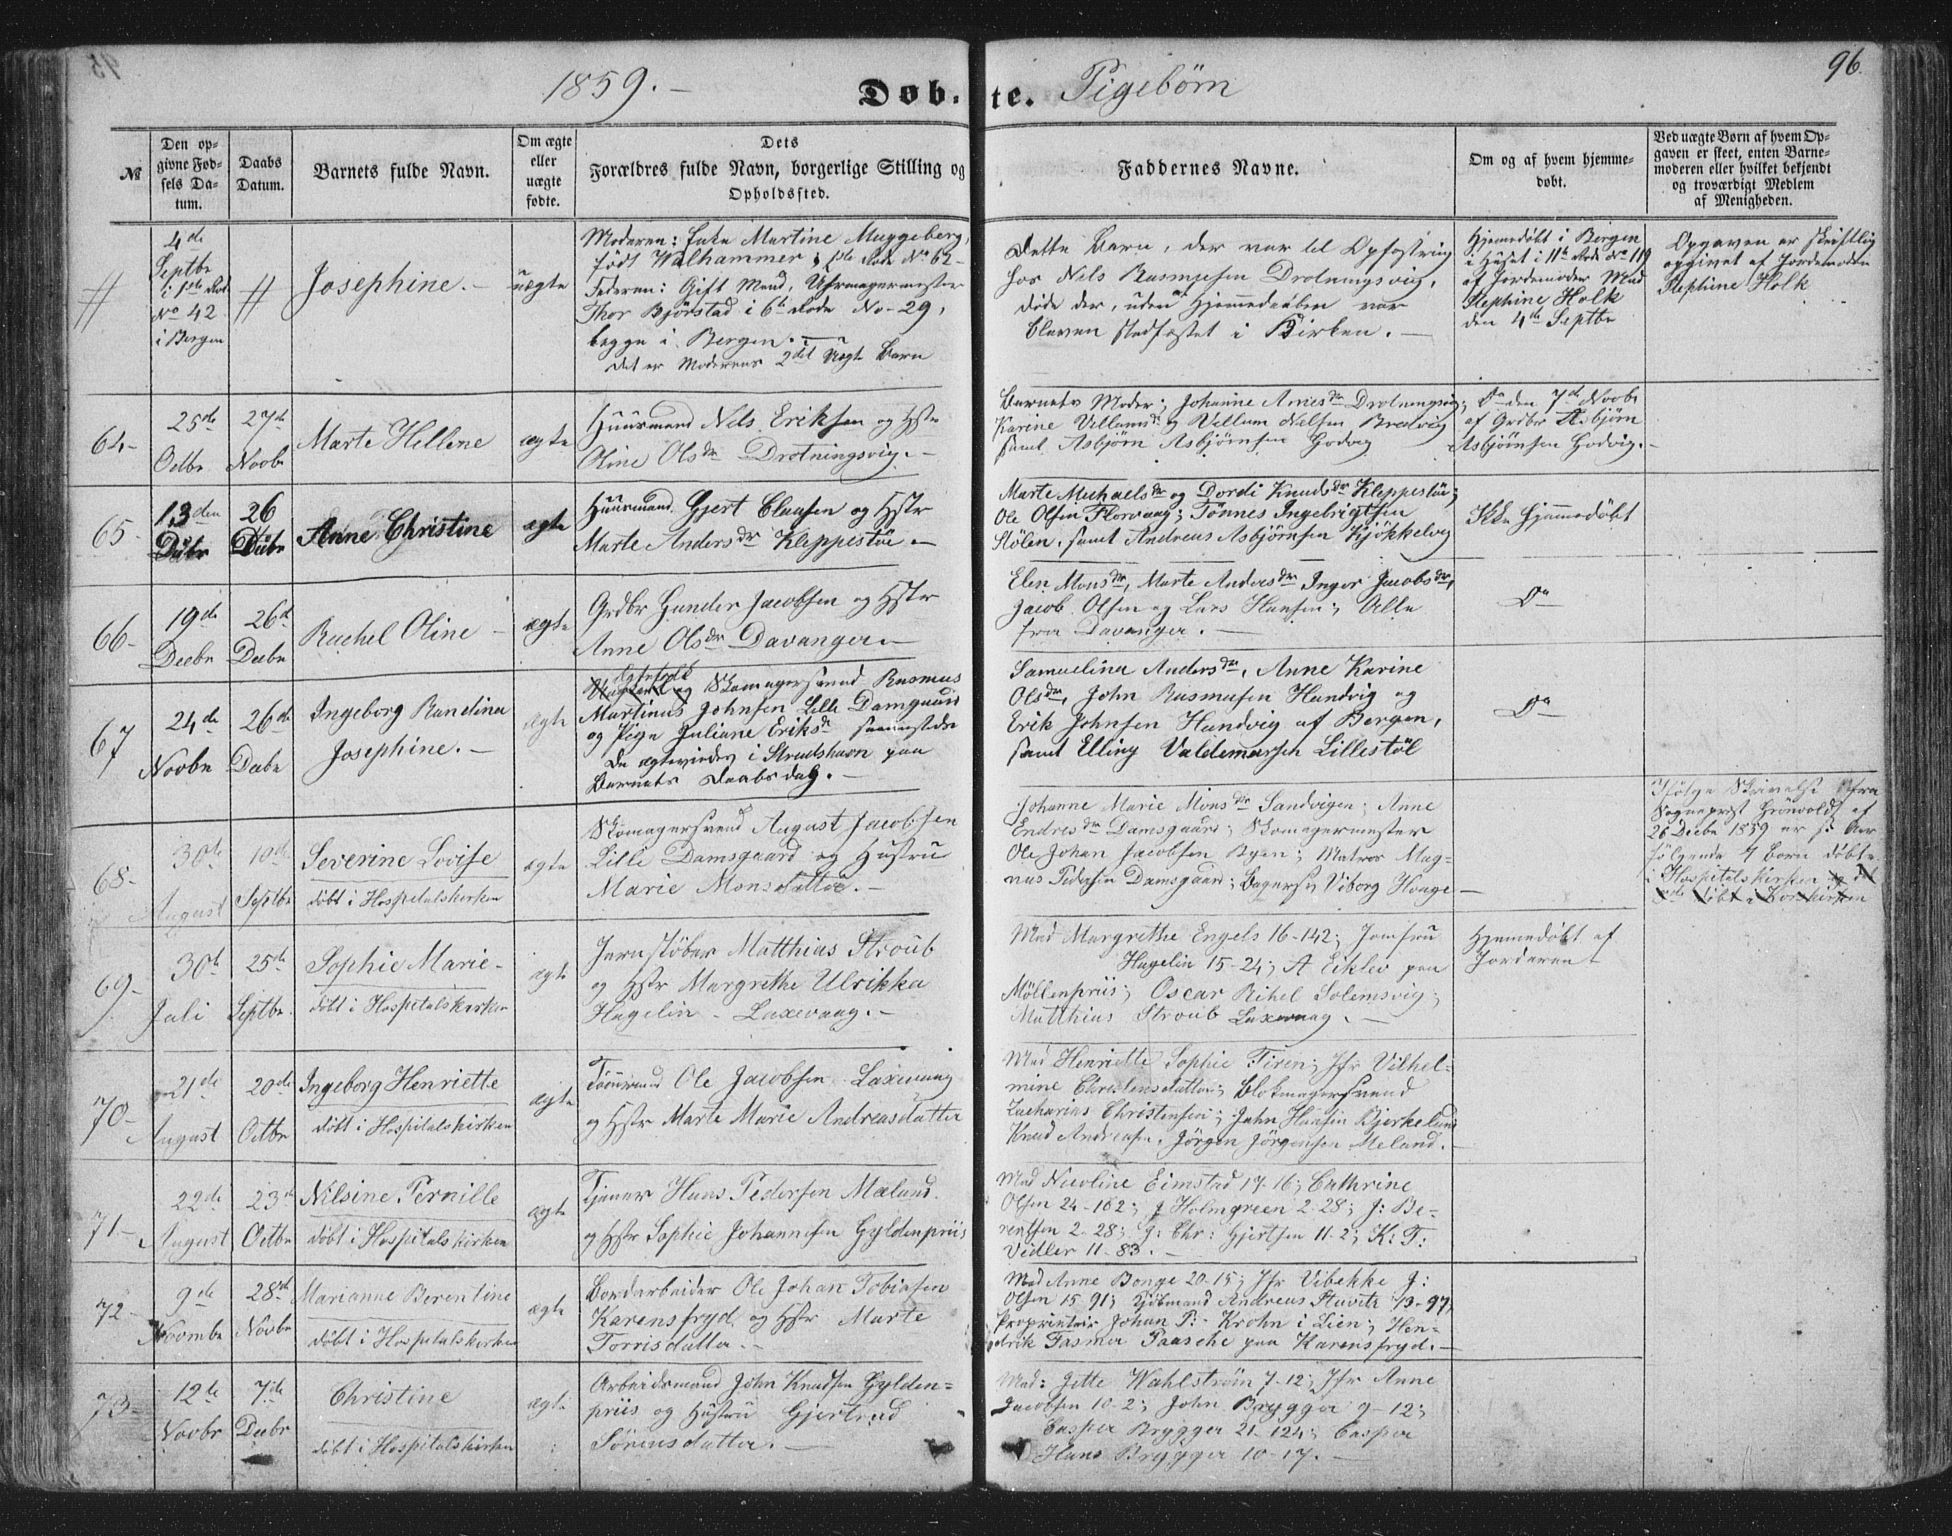 1859.
Døb-te. Pigebørn
96.
№
Den op-
givne Fød-
sels Da-
tum.
Daabs
Datum.
Barnets fulde Navn.
Om ægte
eller
uægte
fødte.
Dets
Forældres fulde Navn, borgerlige Stilling og
Opholdssted.
Faddernes Navne.
Om og af hvem hjemme-
døbt.
Ved uægte Børn af hvem Op-
gaven er skeet, enten Barne-
moderen eller hvilket bekjendt
og troværdigt Medlem
af Menigheden.
4de
Septbr
i 1ste Rode
No 42
i Bergen
Josephine.-
uægte
Moderen: Enke Martine Muggeberg,
født Walhammer i 1ste Rode No 62-
Faderen: Gift Mand, Uhrmagermester
Thor Bjørstad i 6te Rode No-29,
begge i Bergen.
Det er Moderens 2det Uægte Barn
Dette Barn, der var til Opfostring
hos Nels Rasmussen Drotningsvig,
døde der, uden Hjemmedaaben var
bleven stedfæstet i Kirken.-
Hjemmedøbt i Bergen
i Huset i 11te Rode No 119
af Jordemoder Mad
Stephine Holk
den 4de Septbr
Opgaven er skriftlig
opgivet af Jordemoder
Stephine Holk
64-
25de
Octbr
27de
Novbr
Marte Hellene
ægte
Huusmand Nels Eriksen og Hstr
Oline Olsdr Drotningsvig.-
Barnets Moder; Johanne Arnesdr Drotningsvig;
Karine Villumsdr og Villum Nelsen Bredvig
samt Asbjørn Asbjørnsen Godvig
Do den 7de Novbr
af Grdbr Asbjørn
Asbjørnsen Godvig.-
65-
13den
Decbr
26
Decbr
Anne Christine
ægte
Huusmand Gjert Clausen og Hstr
Marte Andersdr Kleppestøe.-
Marte Michaelsdr og Dordi Knudsdr Kleppestøe;
Ole Olsen Florvaag; Tønnes Ingebrigtsen
Stølen, samt Andreas Asbjørnsen Kjøkkelvig
Ikke Hjemmedøbt
66-
19de
Decbr
26d
Decbr
Rachel Oline-
ægte
Grdbr Gunder Jacobsen og Hstr
Anne Olsdr Davanger.-
Elen Monsdr, Marte Andersdr Inger Jacobsdr,
Jacob Olsen og Lars Hansen; Alle
fra Davanger.-
Do
67
24de
Novbr
26de
Decbr
Ingeborg Randina
Josephine.-
ægte
og Skomagersvend Rasmus
Martinus Johnsen Lille Damsgaard
og Pige Juliane Eriksdr sammesteds
De ægteviedes i Strudshavn paa
Barnets Daabsdag.-
Samuelina Andersdr, Anne Karine
Olsdr, John Rasmusen Hundvig og
Erik Johnsen Hundvig af Bergen,
samt Elling Valdemarsen Lillestøl
Do
68-
30te
August
10de
Septbr
Severine Lovise
døbt i Hospitalskirken
ægte
Skomagersvend August Jacobsen
Lille Damsgaard og Hustru
Marie Monsdatter.-
Johanne Marie Monsdr Sandvigen; Anne
Endresdr Damsgaard; Skomagermester
Ole Johan Jacobsen Byen; Matros Mag-
nus Pedersen Damsgaard; Bagersv Viborg Hauge-
Ifølge Skrivelse fra
Sogneprest Grønvold af
26 Decbr 1859 er
følgende 7 Børn døbte
i Hospitalskirken
69-
30te
Juli
25de
Septbr
Sophie Marie-
døbt i Hospitalskirken
ægte
Jernstøber Matthias Stroub
og Hstr Margrethe Ulrikka
Hagelin- Laxevaag.-
Mad Margrethe Engels 16-142; Jomfru
Hagelin 15-24; A Eiklev paa
Möllenpriis; Oscar Rihel Solemsvig;
Matthias Stroub Laxevaag.-
Hjemmedøbt af
70-
21de
August
20de
Octbr
Ingeborg Henriette
døbt i Hospitalskirken
ægte
Tømmermand Ole Jacobsen Laxevaag
og Hstr Marte Marie Andreasdatter
Mad Henriette Sophie Firen; Jfr Vilhel-
mine Christensdatter; Blokmagersvend
Zacharias Christensen; John Hansen Bjerkelund
Knud Andreasen, Jörgen Jörgensen Meland.-
71-
22de
August
23de
Octbr
Nilsine Pernille
døbt i Hospitalskirken
ægte
Tjener Hans Pedersen Mæland
og Hstr Sophie Johannesen Gyldenpriis
Mad Nicoline Eimstad 17-16; Cathrine
Olsen 24-162; J Holmgreen 2-28; J: Be-
rentsen 2-28; J: Chr: Gjertsen 11-2; K: T:
Vidler 11-83.-
72-
9de
Novmbr
28de
Novbr
Marianne Berentine
døbt i Hospitalskirken
ægte
Bordarbeider Ole Johan Tobiasen
Karensfryd og Hstr Marte
Torrisdatter.-
Mad Anne Bonge 20-15; Jfr Vibekke J:
Olsen 15-91; Kjøbmand Andreas Stuvitz 13-97;
Proprietair Johan P:- Krohn i Lien; Hen-
drik Fasmer Paasche paa Karensfryd.-
73-
12te
Novbr
7de
Decbr
Christine
døbt i Hospitalskirken
ægte
Arbeidsmand John Knudsen Gylden-
priis og Hustru Gjertrud
Sörensdatter.-
Mad: Jette Wahlström 7-12; Jfr Anne
Jacobsen 10-2; John Brygger 9-12;
Casper Brygger 21-124; Casper
Hans Brygger 10-17.-